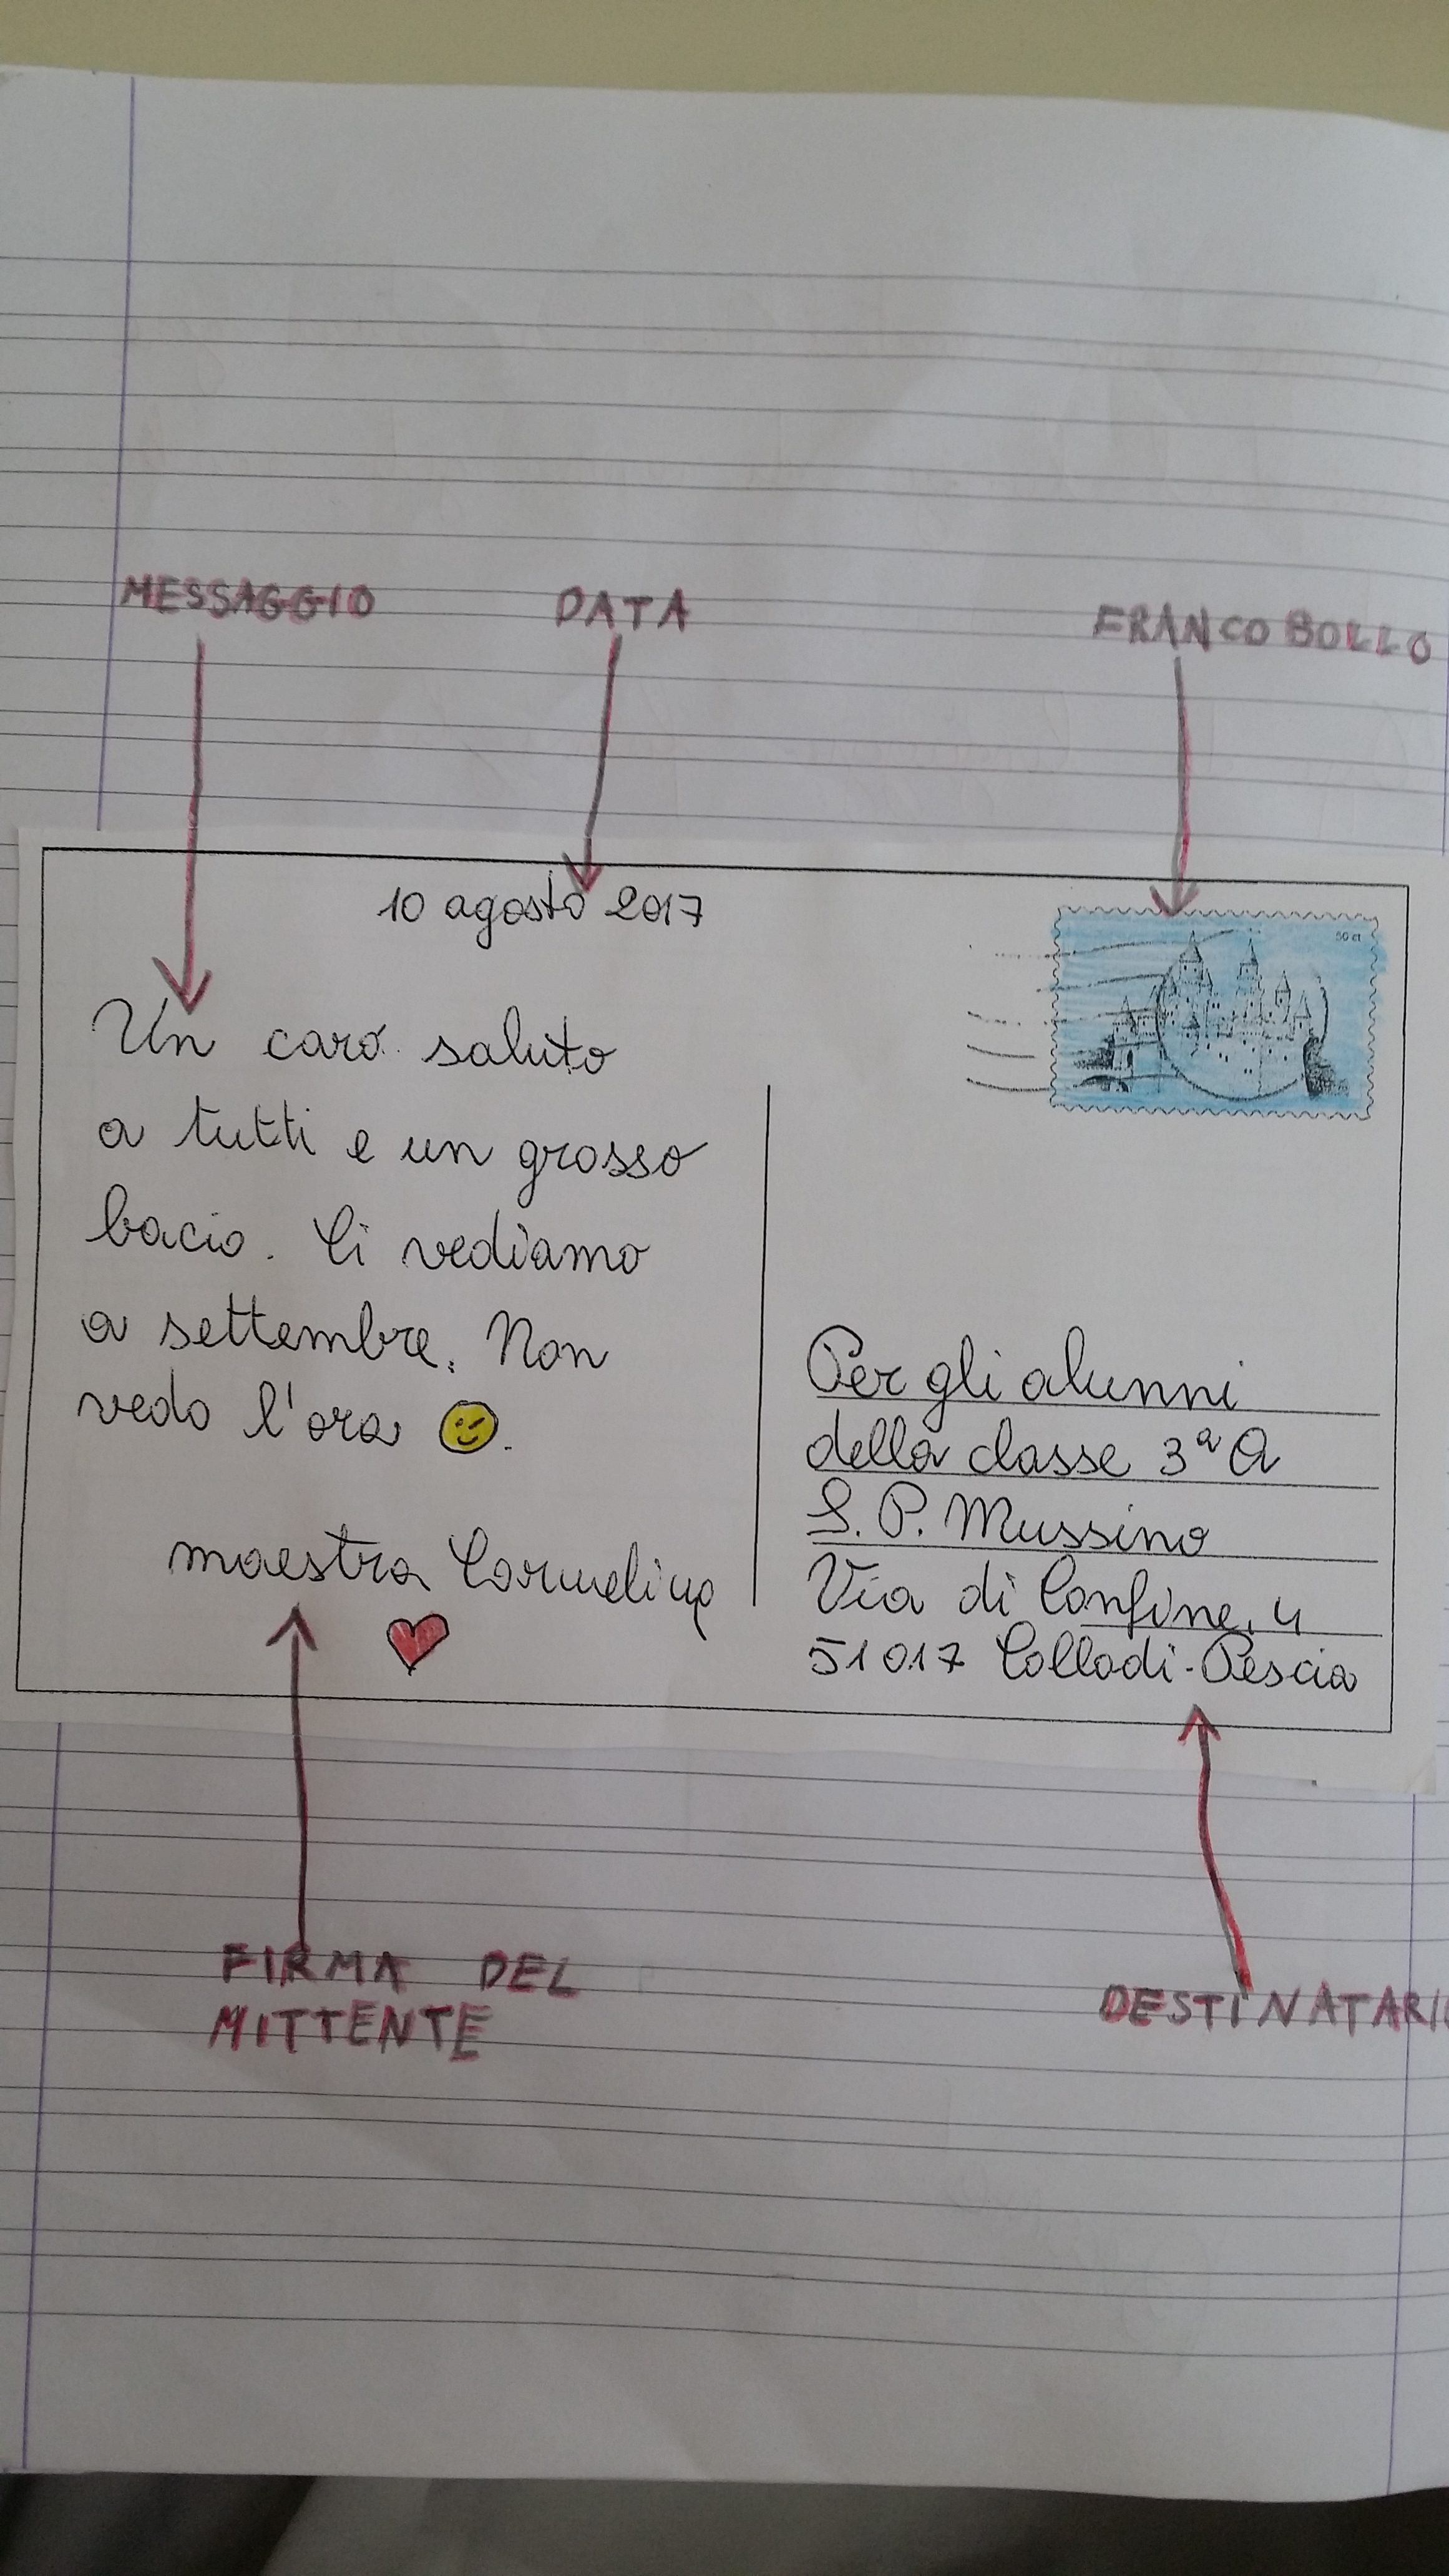 MESSAGGIO DATA FRANCOBOLLO
10 agosto 2017
50 ct
Un caro saluto
a tutti e un grosso
bacio. Ci vediamo
a settembre. Non
vedo l'ora
maestra Carmelina
Per gli alunni
della classe 3ª A
S. P. Mussino
Via di Confine, 4
51017 Collodi-Pescia
FIRMA DEL
MITTENTE
DESTINATARI